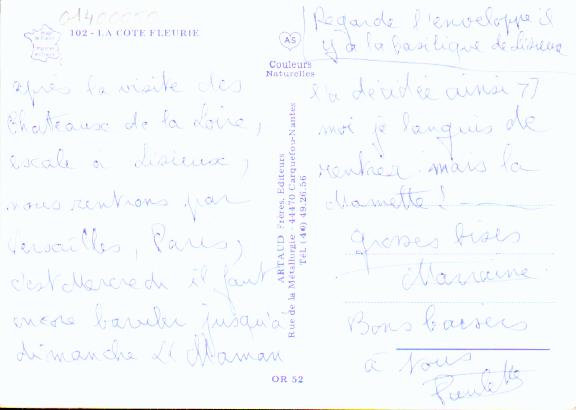 01400050
102 - LA COTE FLEURIE
après la visite des
Chateaux de la Loire,
escale à Lisieux,
nous rentrons par
Versailles, Paris,
c'est Mercredi il faut
encore jusqu'à
dimanche Maman
AS
Couleurs
Naturelles
ARTAUD Frères, Editeurs
Rue de la Métallurgie - 44470 Carquefou-Nantes
Tél. (40) 49.26.56
OR 52
Regarde l'enveloppe il
y a la basilique de Lisieux
l'a décidée ainsi
moi je languis de
rentrer mais la
Mamette !
grosses bises
Marraine
Bons baisers
à vous
Paulette